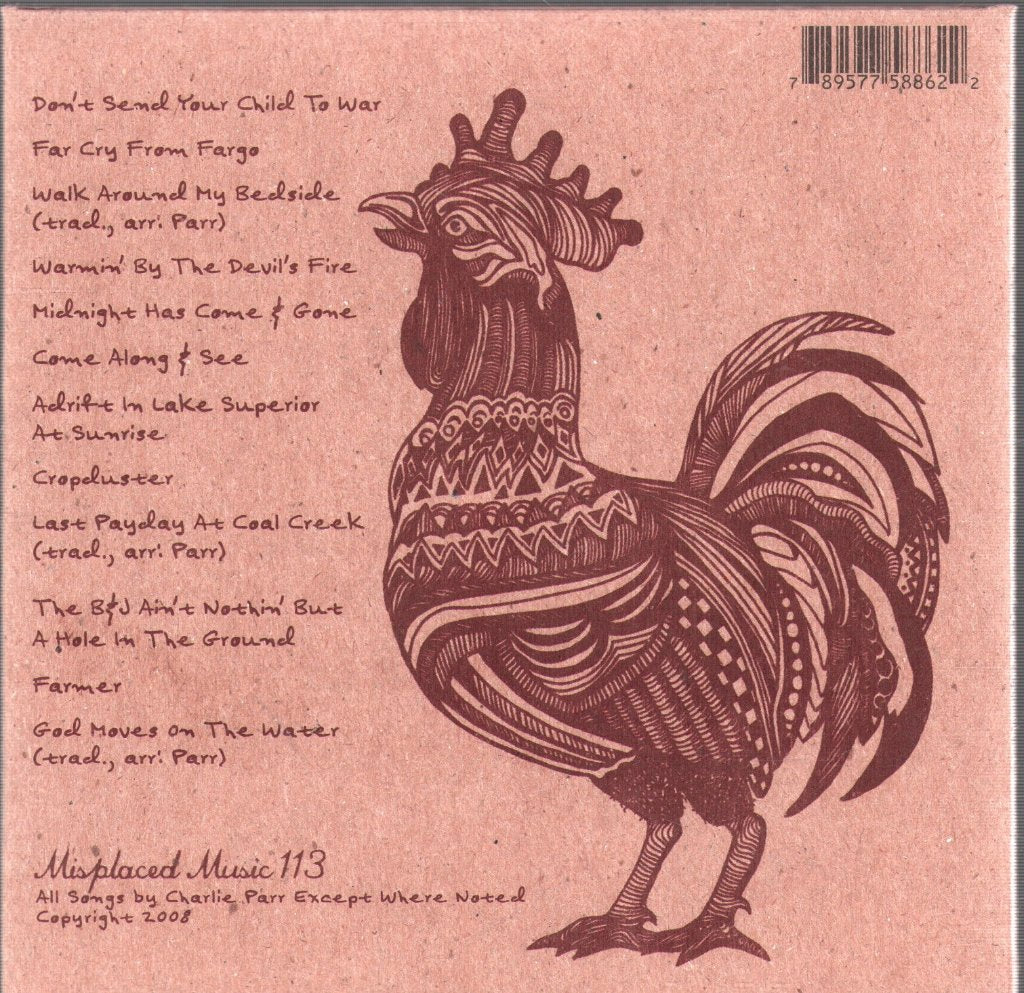 7 89577 58862 2
Don't Send Your Child To War
Far Cry From Fargo
Walk Around My Bedside
(trad., arr: Parr)
Warmin' By The Devil's Fire
Midnight Has Come & Gone
Come Along & See
Adrift In Lake Superior
At Sunrise
Cropduster
Last Payday At Coal Creek
(trad., arr: Parr)
The B&J Ain't Nothin' But
A Hole In The Ground
Farmer
God Moves On The Water
(trad., arr: Parr)
Misplaced Music 113
All Songs by Charlie Parr Except Where Noted
Copyright 2008